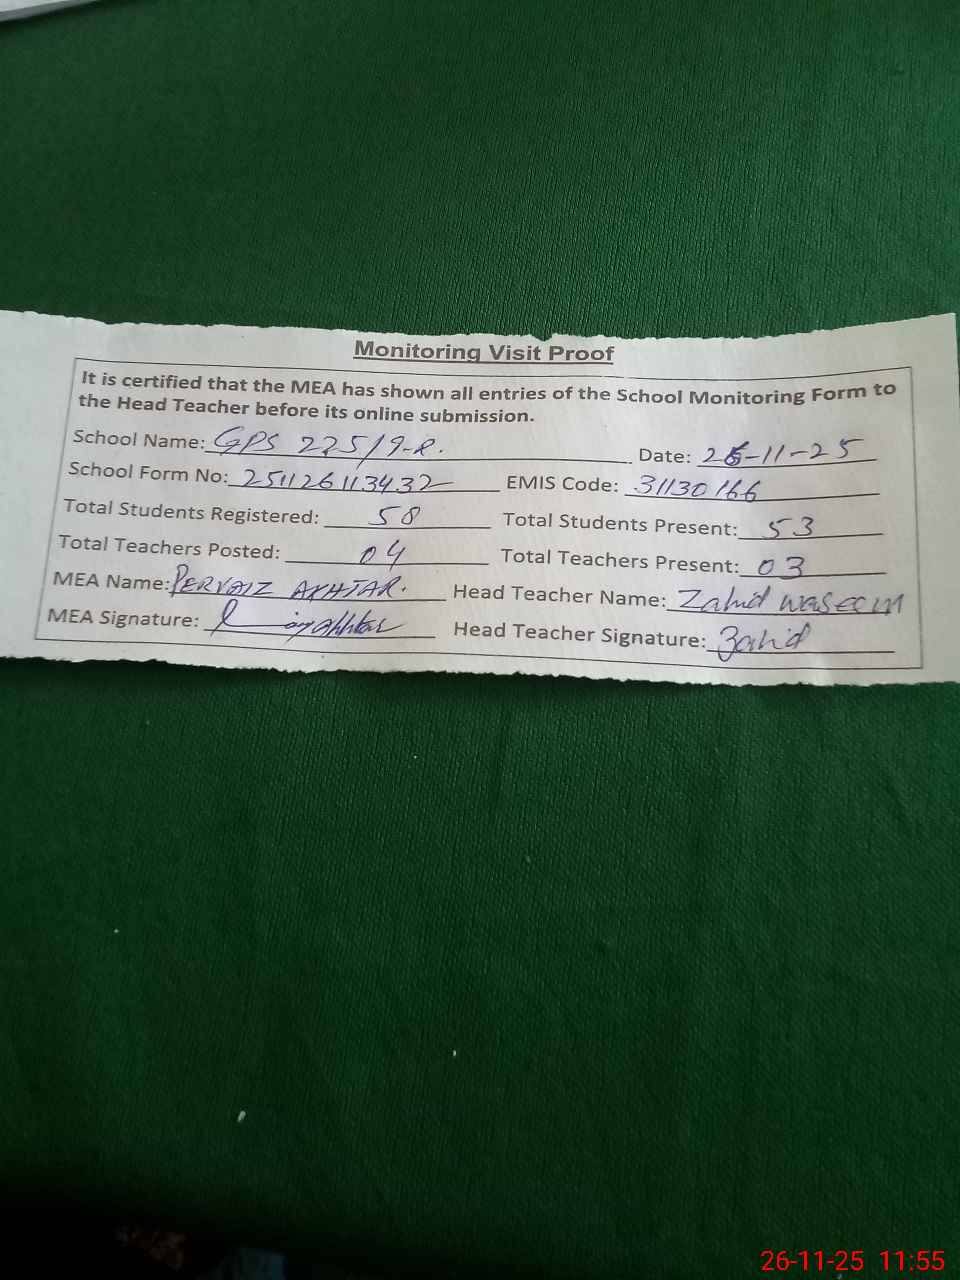 Monitoring Visit Proof
It is certified that the MEA has shown all entries of the School Monitoring Form to
the Head Teacher before its online submission.
School Name: GPS 225/9-R. Date: 26-11-25
School Form No: 251126113432 EMIS Code: 31130166
Total Students Registered: 58 Total Students Present: 53
Total Teachers Posted: 04 Total Teachers Present: 03
MEA Name: PERVAIZ AKHTAR. Head Teacher Name: Zahid waseem
MEA Signature: Head Teacher Signature: Zahid
26-11-25 11:55